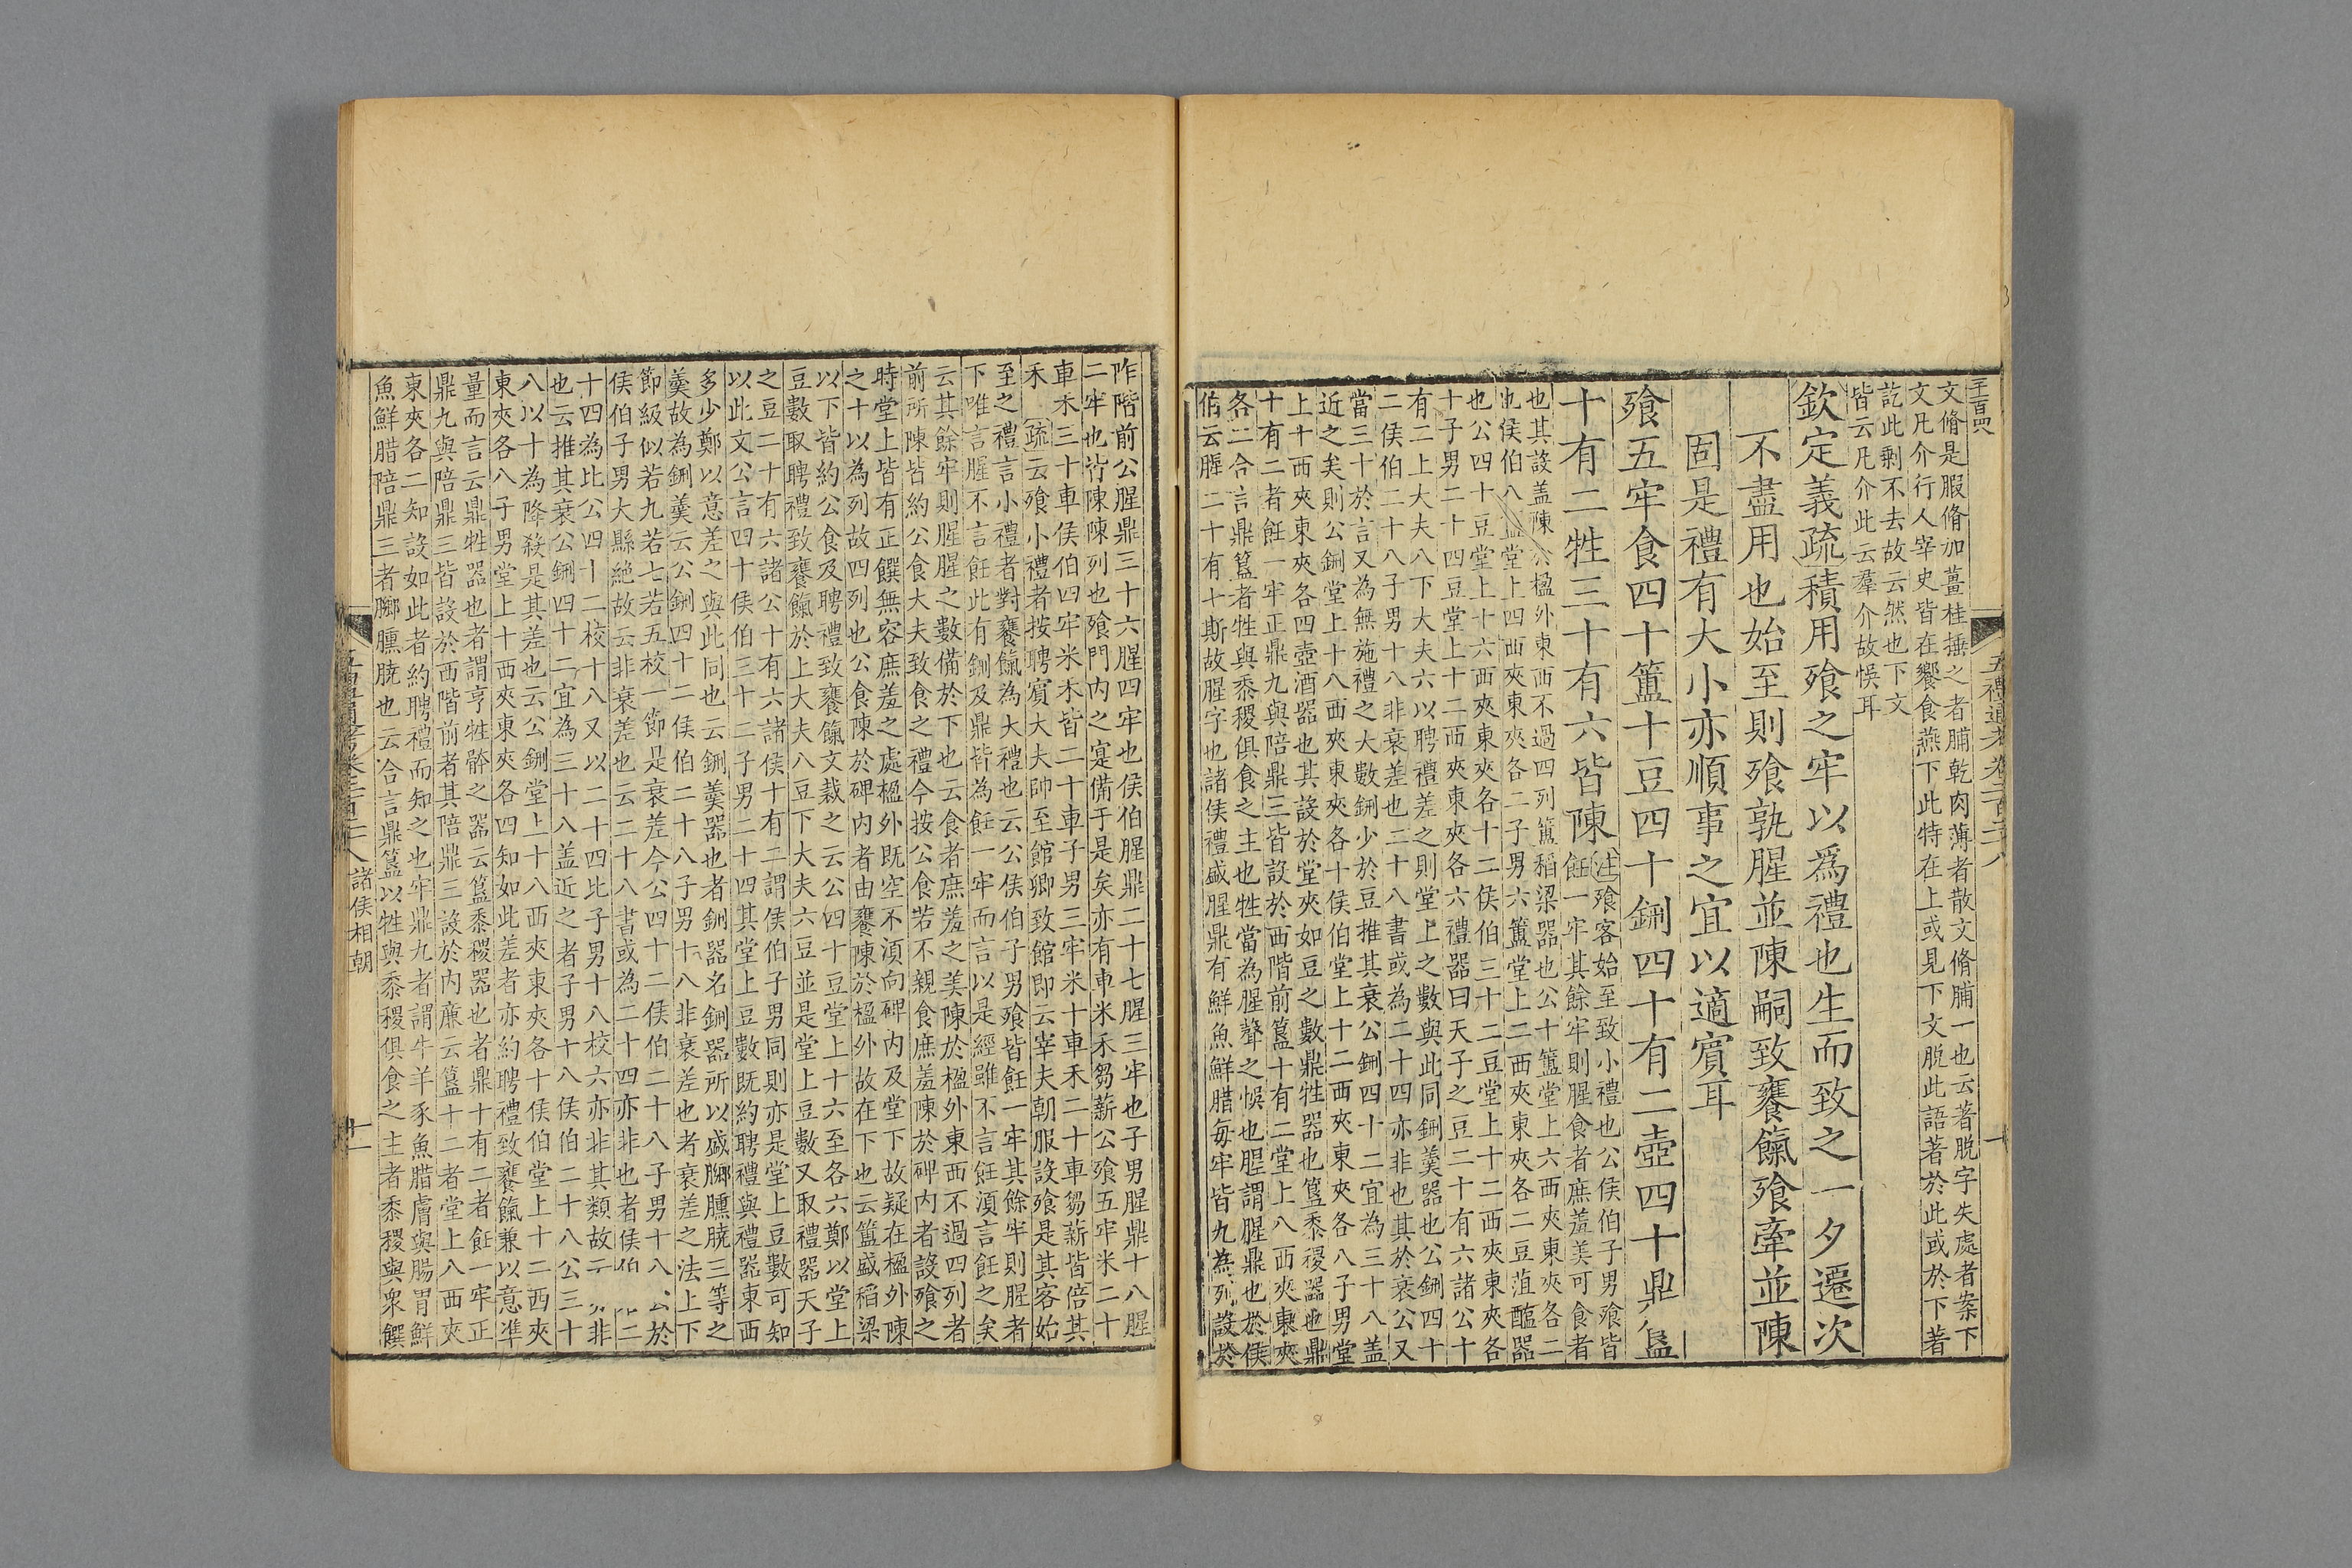 王百
五禮通考卷二百二十八
十
文脩是服脩加薑桂捶之者脯乾肉薄者散文脩脯一也云著脱字失處者案下
文凡介行人宰史皆在饗食燕下此特在上或見下文脱此語著於此或於下著
訖此剩不去故云然也下文
皆云凡介此云羣介故悮耳
欽定義疏積用飱之牢以爲禮也生而致之一夕遷次
不盡用也始至則飱孰腥並陳嗣致饔餼飱牽並陳
固是禮有大小亦順事之宜以適賓耳
飱五牢食四十簠十豆四十鉶四十有二壺四十鼎簋
十有二牲三十有六皆陳
注飱客始至致小禮也公侯伯子男飱皆
飪一牢其餘牢則腥食者庶羞美可食者
也其設盖陳於楹外東西不過四列簠稻粱器也公十簠堂上六西夾東夾各二
也侯伯八簠堂上四西夾東夾各二子男六簠堂上二西夾東夾各二豆菹醢器
也公四十豆堂上十六西夾東夾各十二侯伯三十二豆堂上十二西夾東夾各
十子男二十四豆堂上十二西夾東夾各六禮器曰天子之豆二十有六諸公十
有二上大夫八下大夫六以聘禮差之則堂上之數與此同鉶羹器也公鉶四十
二侯伯二十八子男十八非衰差也二十八書或為二十四亦非也其於衰公又
當三十於言又為無施禮之大數鉶少於豆推其衰公鉶四十二宜為三十八盖
近之矣則公鉶堂上十八西夾東夾各十侯伯堂上十二西夾東夾各八子男堂
上十西夾東夾各四壺酒器也其設於堂夾如豆之數鼎牲器也簋黍稷器也鼎
十有二者飪一牢正鼎九與陪鼎三皆設於西階前簋十有二堂上八西夾東夾
各二合言鼎簋者牲與黍稷俱食之主也牲當為腥聲之悮也腥謂腥鼎也於侯
伯云腥二十有七斯故腥字也諸侯禮盛腥鼎有鮮魚鮮腊每牢皆九為列設於
阼階前公腥鼎三十六腥四牢也侯伯腥鼎二十七腥三牢也子男腥鼎十八腥
二牢也皆陳陳列也飱門内之寔備于是矣亦有車米禾芻薪公飱五牢米二十
車禾三十車侯伯四牢米禾皆二十車子男三牢米十車禾二十車芻薪皆倍其
禾
疏云飱小禮者按聘賓大夫帥至館卿致館即云宰夫朝服設飱是其客始
至之禮言小禮者對饔餼為大禮也云公侯伯子男飱皆飪一牢其餘牢則腥者
下唯言腥不言飪此有鉶及鼎皆為飪一牢而言以是經雖不言飪湏言飪之矣
云其餘牢則腥腥之數備於下也云食者庶羞之美陳於楹外東西不過四列者
前所陳皆約公食大夫致食之禮今按公食若不親食庶羞陳於碑内者設飱之
時堂上皆有正饌無容庶羞之處楹外既空不湏向碑内及堂下故疑在楹外陳
之十以為列故四列也公食陳於碑内者由饔陳於楹外故在下也云簠盛稻粱
以下皆約公食及聘禮致饔餼文裁之云公四十豆堂上十六至各六鄭以堂上
豆數取聘禮致饔餼於上大夫八豆下大夫六豆並是堂上豆數又取禮器天子
之豆二十有六諸公十有六諸侯十有二謂侯伯子男同則亦是堂上豆數可知
以此文公言四十侯伯三十二子男二十四其堂上豆數既約聘禮與禮器東西
多少鄭以意差之與此同也云鉶羹器也者鉶器名鉶器所以盛膷臐膮三等之
羹故為鉶羹云公鉶四十二侯伯二十八子男十八非衰差也者衰差之法上下
節級似若九若七若五校一節是衰差今公四十二侯伯二十八子男十八公於
侯伯子男大縣絶故云非衰差也云二十八書或為二十四亦非也者侯伯
十四為比公四十二校十八又以二十四比子男十八校六亦非其類故云非
也云推其衰公鉶四十二宜為三十八盖近之者子男十八侯伯二十八公三十
八以十為降殺是其差也云公鉶堂上十八西夾東夾各十侯伯堂上十二西夾
東夾各八子男堂上十西夾東夾各四知如此差者亦約聘禮致饔餼兼以意准
量而言云鼎牲器也者謂亨牲骵之器云簋黍稷器也者鼎十有二者飪一牢正
鼎九與陪鼎三皆設於西階前者其陪鼎三設於内亷云簋十二者堂上八西夾
東夾各二知設如此者約聘禮而知之也牢鼎九者謂牛羊豕魚腊膚與腸胃鮮
魚鮮腊陪鼎三者膷臐膮也云合言鼎簋以牲與黍稷俱食之主者黍稷與衆饌
諸侯相朝
十一